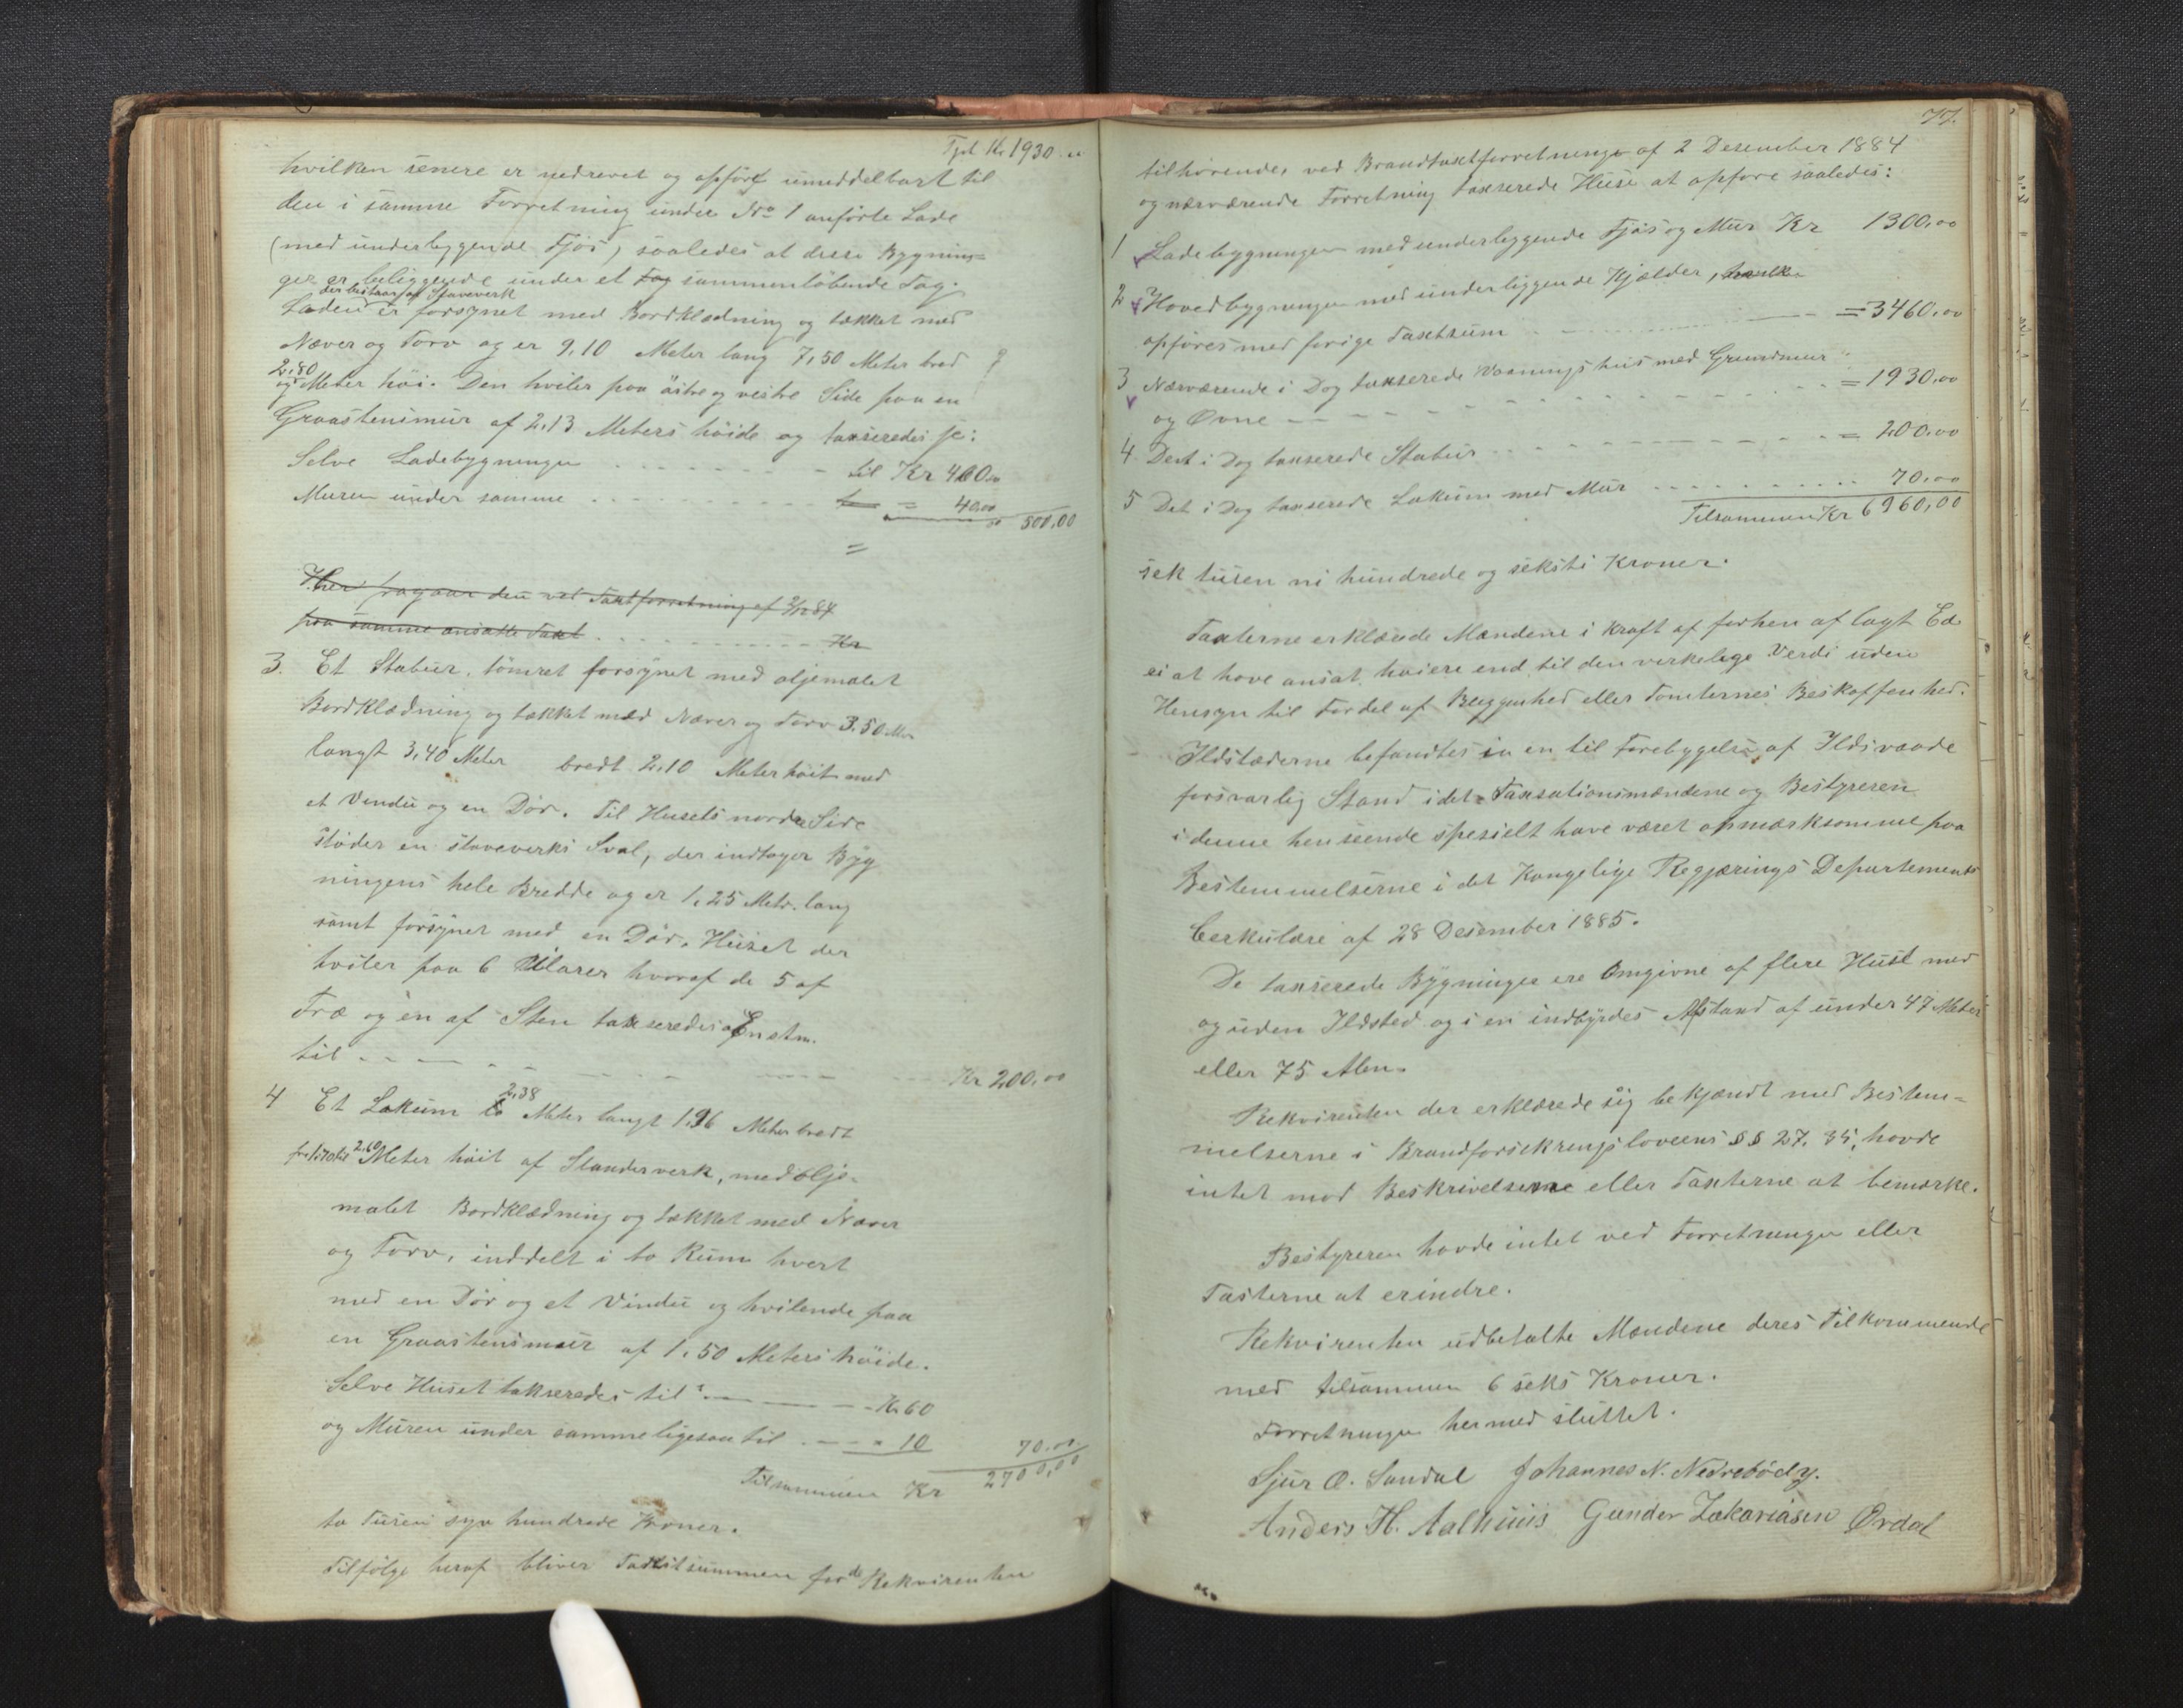 Tpt Kr 1930.00
hvilken senere er nedrevet og opført umiddelbart til
den i samme Forretning under No 1 anførte Lade
(med underliggende Fjøs) saaledes at disse Bygnin-
ger er beliggende under et Tag sammenløbende Tag.
der bestaar af Stavverk
Laden er forsynet med Bordklædning og tækket med
Næver og Torv og er 9,10 Meter lang 7,50 Meter bred
2,80
og Meter høi. Den hviler paa østre og vestre Side paa en
Graastensmur af 2,13 Meters høide og taxseredes
Selve Ladebygningen til Kr 460.00
Muren under samme = 40.00
500,00
Her fragaar den ved Taxtforretning af 2/12 84
paa samme ansatte Taxt Kr
3. Et Stabur, tømret forsynet med oljemalet
Bordklædning og tækket med Næver og Torv 3.50 Meter
langt 3,40 Meter bredt 2,10 Meter høit med
et Vindu og en Dør. Til Husets nordre Side
støder en stavverks Sval, der indtager Byg
ningens hele Bredde og er 1,25 Metr. lang
samt forsynet med en Dør. Huset der
hviler paa 6 Pilarer hvoraf de 5 af
Træ og en af Sten taxseredes
til Kr 200,00
2,38
4 Et Lokum Meter langt 1,96 Meter bredt
fra 1,70 til 2,60 Meter høit af Standerverk, med olje-
malet Bordklædning og tækket med Næver
og Torv, inddelt i to Rum hvert
med en Dør og et Vindu og hvilende paa
en Graastensmur af 1,50 Meters høide.
Selve Huset takseredes til Kr 60
og Muren under samme ligesaa til " 10
70.00
Tilsammen Kr 2700,00
to tusen syv hundrede Kroner.
Tilfølge heraf bliver Taxtsummen for de Rekvirenten
77.
tilhørende, ved Brandtaxtforretninge af 2 Desember 1884
og nærværende Forretning taxserede Huse at opføre saaledes:
1 Ladebygningen med underliggende Fjøs og Mur Kr 1300,00
2 Hovedbygningen med underliggende Kjælder, hvilken
opføres med forige Taxtsum = 3460,00
3 Nærværende i Dag taxserede Vaaningshus med Grundmur
og Ovne = 1930,00
4. Det i Dag taxserede Stabur = 200.00
5 Det i Dag taxserede Lokum med Mur 70.00
Tilsammen Kr 6960,00
sek tusen ni hundrede og seksti Kroner.
Taxterne erklærede Mændene i Kraft af forhen aflagt Ed
ei at have ansat høiere end til den verkelige Verdi uden
Hensyn til Fordel af Beliggenhed eller Tomternes Beskaffenhed.
Ildstæderne befandtes i en til Forebyggelse af Ildsvaade
forsvarlig Stand idet Taxsationsmændene og Bestyreren
i denne henseende spesielt have været opmærksomme paa
Bestemmelserne i det Kongelige Regjærings Departements
Cerkulære af 28 Desember 1885.
De taxserede Bygninger ere Omgivne af flere Huse med
og uden Ildsted og i en indbyrdes Afstand af under 47 Meter
eller 75 Alen.
Rekvirenten der erklærede sig bekjændt med Bestem-
melserne i Brandforsikringslovens §§ 27. 35, havde
intet mod Beskrivelserne eller Taxterne at bemærke.
Bestyreren havde intet ved Forretningen eller
Taxterne at erindre.
Rekvirenten udbetalte Mændene deres Tilkommende
med tilsammen 6 seks Kroner.
Forretningen hermed sluttet.
Sjur O. Sandal Johannes N. Nedrebødy.
Anders H. Aalhuus Gunder Zakariasen Ordal